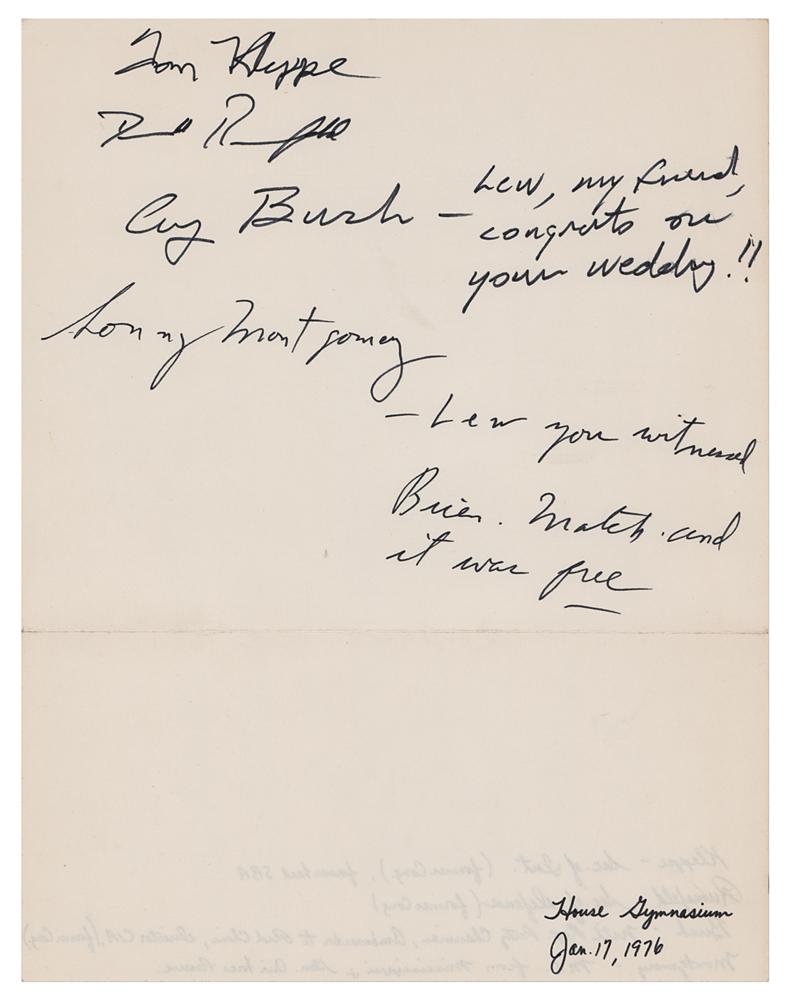 Tom Kleppe
Don Rumsfeld
Bush – Lew, my friend,
congrats on
your wedding!!
Sonny Montgomery
– Lew you witnessed
Match. and
it was free
House Gymnasium
Jan. 17, 1976